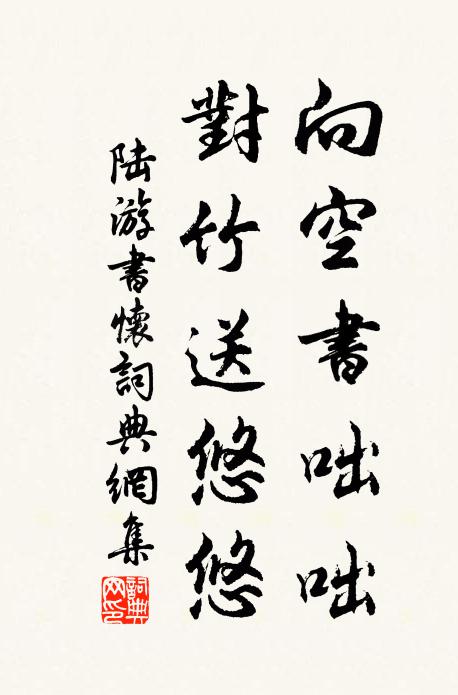 向空書咄咄
對竹送悠悠
陸游書懷詞典網集
詞典網印